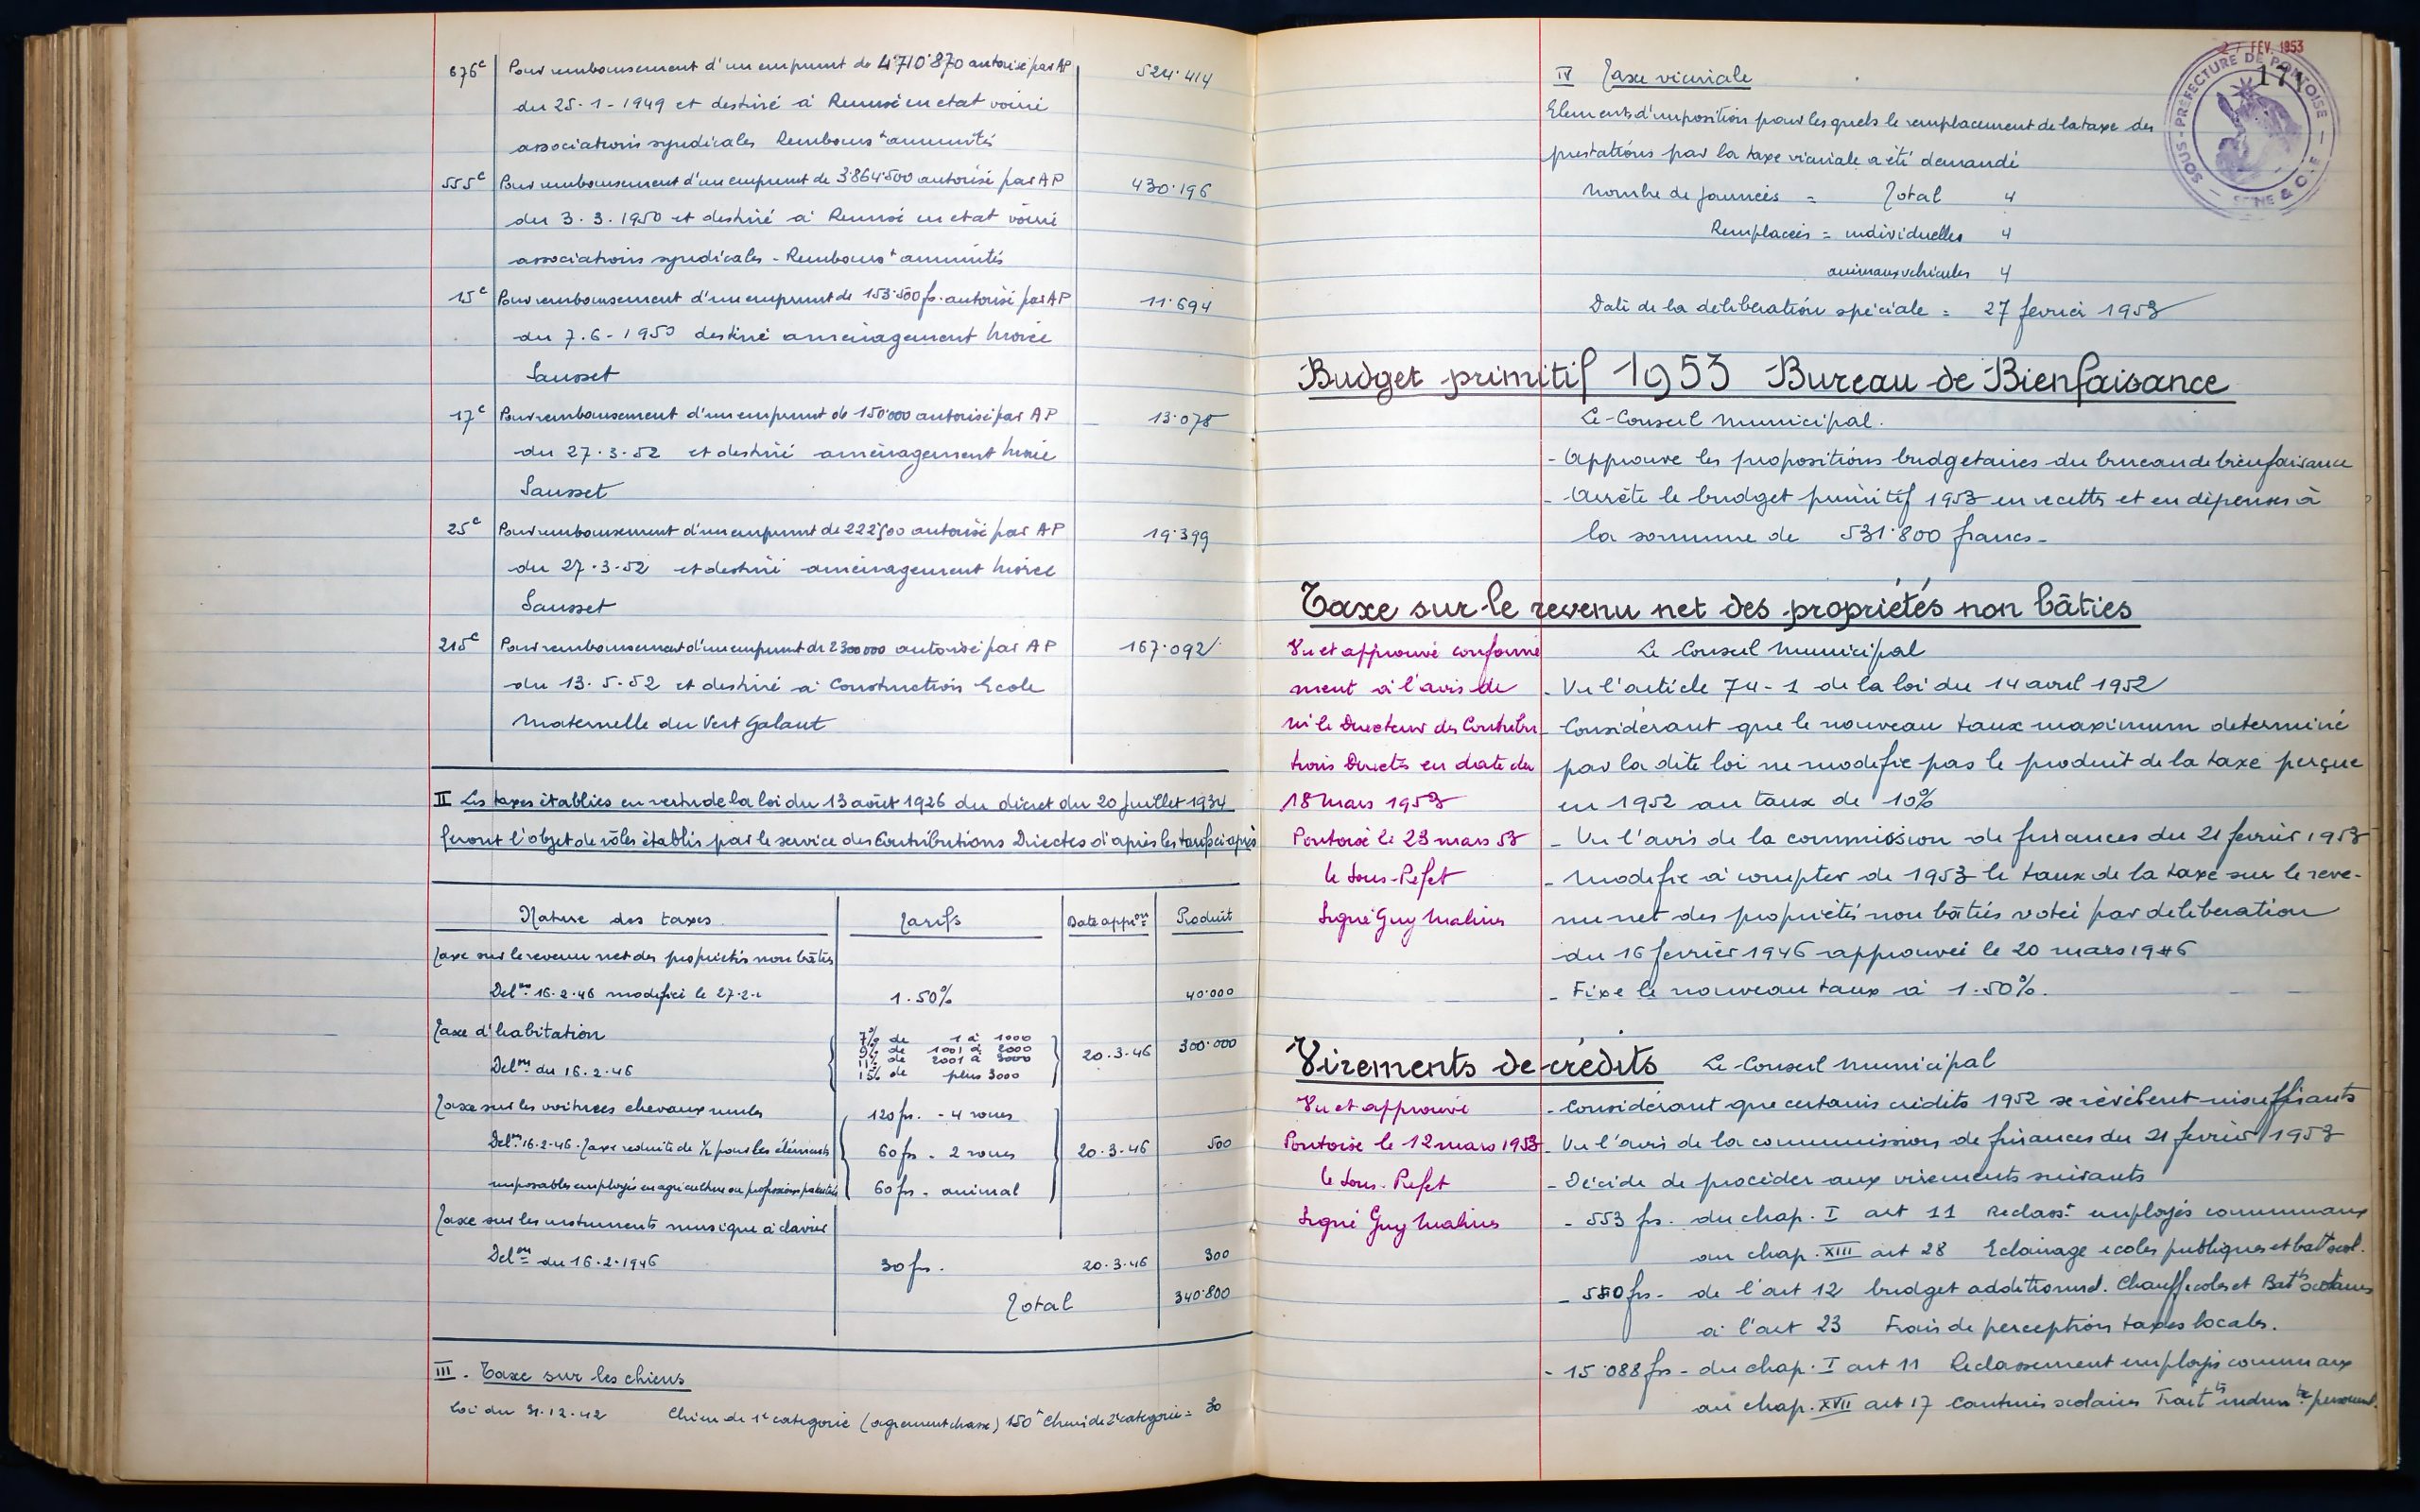 676c Pour remboursement d'un emprunt de 4.710.870 autorisé par AP 524.414
du 25-1-1949 et destiné à Remise en etat voirie
associations syndicales Rembours t annuités
555c Pour remboursement d'un emprunt de 3.864.500 autorisé par AP 430.196
du 3.3.1950 et destiné à Remise en etat voirie
associations syndicales - Rembours t annuités
15c Pour remboursement d'un emprunt de 153.500 fs. autorisé par AP 11.694
du 7.6-1950 destiné aménagement
Sausset
17c Pour remboursement d'un emprunt de 150.000 autorisé par AP 13.078
du 27.3.52 et destiné aménagement
Sausset
25c Pour remboursement d'un emprunt de 222.500 autorisé par AP 19.399
du 27.3.52 et destiné aménagement
Sausset
215c Pour remboursement d'un emprunt de 2300000 autorisé par AP 167.092
du 13.5.52 et destiné à Construction Ecole
Maternelle du Vert Galant
II Les taxes établies en vertu de la loi du 13 août 1926 du décret du 20 juillet 1934
feront l'objet de rôles établis par le service des Contributions Directes d'après les tarifs ci après
Nature des taxes. Tarifs Date appr on Produit
Taxe sur le revenu net des propriétés non bâties
Del on 16.2.46 modifiée le 27.2. 1.50% 40.000
Taxe d'habitation
7% de 1 à 1000
9% de 1001 à 2000
11% de 2001 à 3000
15% de plus 3000
Del on du 16.2.46 20.3.46 300.000
Taxe sur les voitures chevaux mules 120 frs. - 4 roues
Del on 16-2-46. Taxe reduite de ½ pour les éléments 60 frs - 2 roues 20.3.46 500
imposables employés en agriculture ou professions patentées 60 frs - animal
Taxe sur les instruments musique à clavier
Del on du 16.2.1946 30 frs. 20.3.46 300
Total 340.800
III. Taxe sur les chiens
Loi du 31.12.42 Chien de 1e categorie (agrement chasse) 150 Chiens de 2e categorie = 30
27 FEV. 1953
171
SOUS-PRÉFECTURE DE PONTOISE
SEINE & OISE
IV Taxe vicinale
Elements d'imposition pour lesquels le remplacement de la taxe des
prestations par la taxe vicinale a été demandé
Nombre de journées = Total 4
Remplacées = individuelles 4
animaux véhicules 4
Date de la délibération spéciale = 27 fevrier 1953
Budget primitif 1953 Bureau de Bienfaisance
Le Conseil Municipal.
- Approuve les propositions budgetaires du bureau de bienfaisance
- Arrête le budget primitif 1953 en recettes et en dépenses à
la somme de 531.800 francs -
Taxe sur le revenu net des propriétés non bâties
Le Conseil Municipal
- Vu l'article 74-1 de la loi du 14 avril 1952
- Considérant que le nouveau taux maximum determiné
par la dite loi ne modifie pas le produit de la taxe perçue
en 1952 au taux de 10%
- Vu l'avis de la commission de finances du 21 fevrier 1953
- Modifie à compter de 1953 le taux de la taxe sur le reve-
nu net des propriétés non bâties votée par deliberation
du 16 fevrier 1946 approuvée le 20 mars 1946
- Fixe le nouveau taux à 1.50%.
Vu et approuvé conformé
ment à l'avis de
Mr le Directeur des Contribu
tions Directes en date du
18 Mars 1953
Pontoise le 23 mars 53
le Sous-Prefet
Signé Guy Malines
Virements de crédits Le Conseil Municipal
- Considérant que certains crédits 1952 se révèlent insuffisants
- Vu l'avis de la commission de finances du 21 fevrier 1953
- Décide de procéder aux virements suivants
- 553 frs. du chap. I art 11 Reclass t employés communaux
au chap. XIII art 28 Eclairage ecoles publiques et bat t scol.
- 580 frs - de l'art 12 budget additionnel. Chauff ecoles et Bat ts scolaires
à l'art 23 Frais de perception taxes locales.
- 15.088 frs - du chap. I art 11 Reclassement employés communaux
au chap. XVII art 17 Cantines scolaires Trait ts indem tés personnel.
Vu et approuvé
Pontoise le 12 mars 1953
le Sous-Prefet
Signé Guy Malines